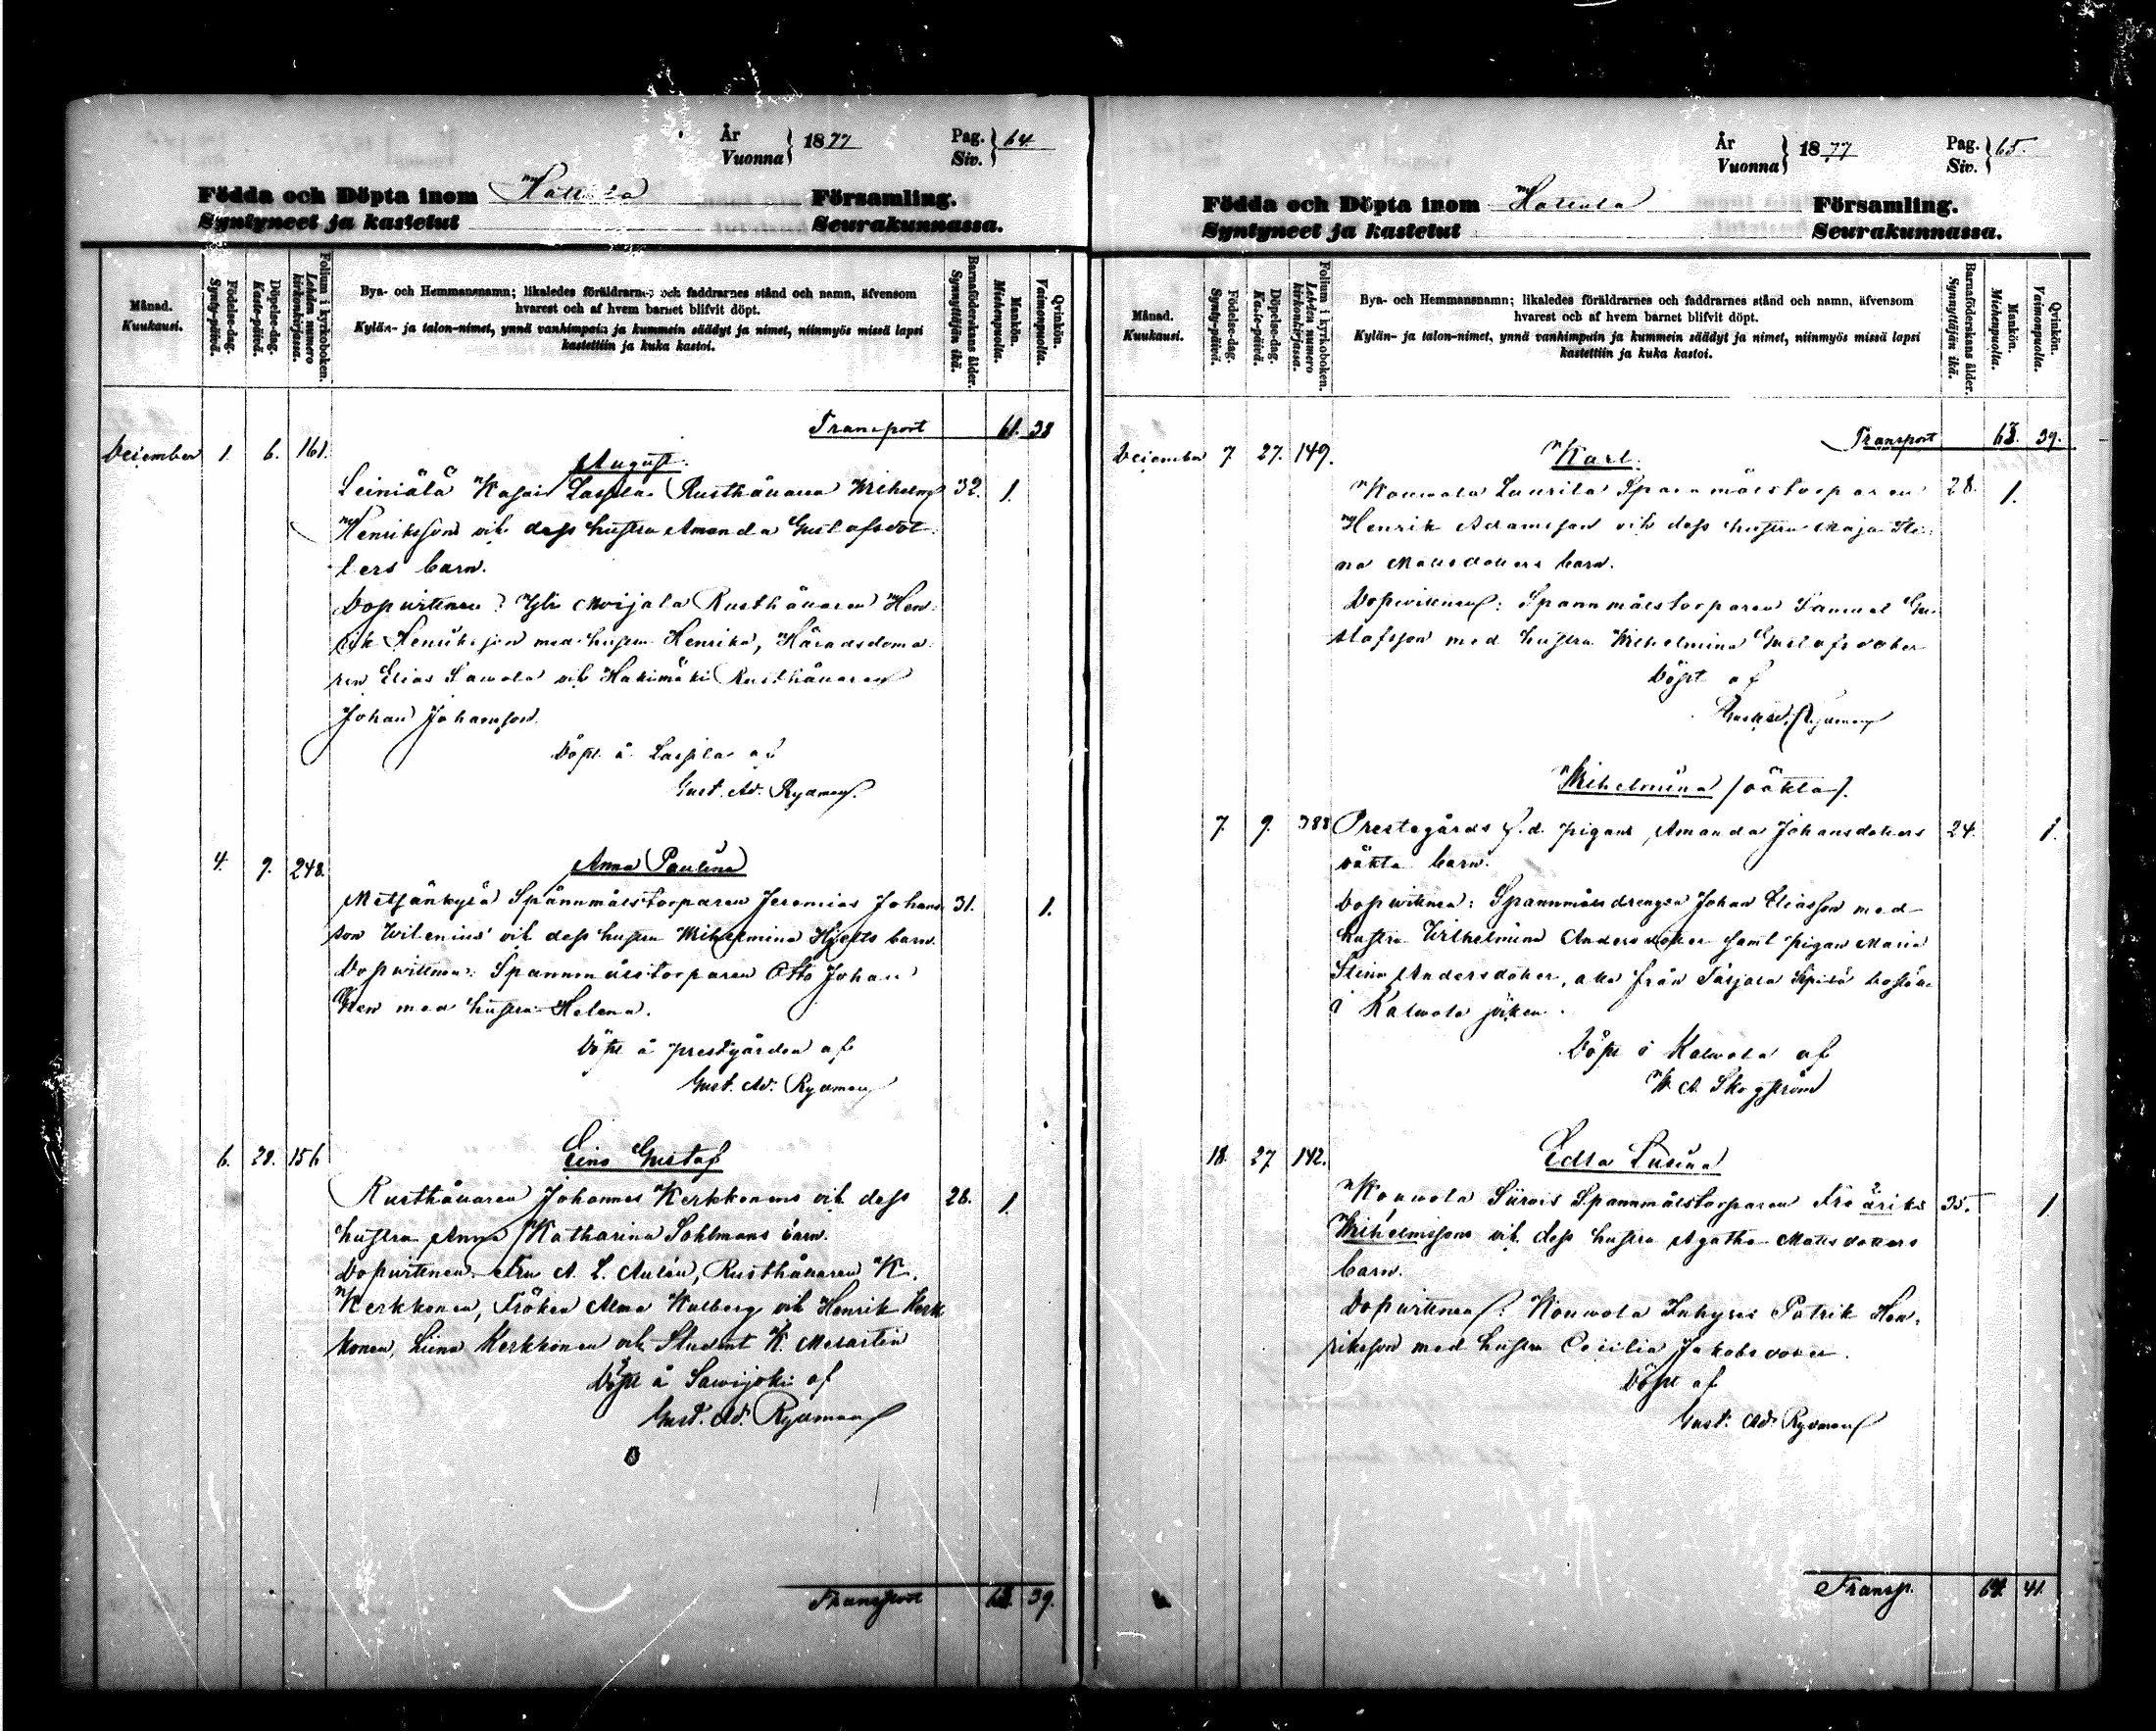 År
Vuonna } 1877 Pag.
Siv. } 64
Födda och Döpta inom Församling.
Syntyneet ja kastetut Seurakunnassa.
Månad.
Kuukausi.
Födelse-dag.
Synty-päivä.
Döpelse-dag.
Kaste-päivä.
Folium i kyrkoboken.
Lehden numero
kirkonkirjassa.
Bya- och Hemmansnamn; likaledes föräldrarnes och faddrarnes stånd och namn, äfvensom
hvarest och af hvem barnet blifvit döpt.
Kylän- ja talon-nimet, ynnä vanhimpain ja kummein säädyt ja nimet, niinmyös missä lapsi
kastettiin ja kuka kastoi.
Barnaföderskans ålder.
Synnyttäjän ikä.
Mankön.
Miehenpuolta.
Qvinkön.
Vaimonpuolta.
Transport 61. 38
December 1. 6. 161.
August.
Leiniälä Laspla Rusthållaren Wilhelm 32. 1.
Henriksson och dess hustru Amanda Gustafsdot-
ters barn.
Dopvittnen: Rusthållaren Hen-
rik Henriksson med hustru Henrika, Häradsdoma-
ren Elias och Hakimäki Rusthållaren
Johan Johansson.
Döpt å Laspla af
Gust. Ad. Rydman.
4. 9. 248.
Anna Paulina
Metsänkylä Spannmålstorparen Jeremias Johans- 31. 1.
son Wilenius och dess hustru Wilhelmina Hjelts barn.
Dopvittnen: Spannmålstorparen Otto Johan
med hustru Helena.
Döpt å prestgården af
Gust. Ad. Rydman
6. 28. 156
Eino Gustaf
Rusthållaren Johannes Kerkkonens och dess 28. 1.
hustru Anna Katharina Sohlmans barn.
Dopvittnen: Fru A. L. Aulén, Rusthållaren K.
Kerkkonen, Fröken Alma och Henrik Kerk-
konen, Liina Kerkkonen och Student K.
Döpt å Sawijoki af
Gust. Ad. Rydman
Transport 63. 39.
År
Vuonna } 1877 Pag.
Siv. } 65.
Födda och Döpta inom Församling.
Syntyneet ja kastetut Seurakunnassa.
Månad.
Kuukausi.
Födelse-dag.
Synty-päivä.
Döpelse-dag.
Kaste-päivä.
Folium i kyrkoboken.
Lehden numero
kirkonkirjassa.
Bya- och Hemmansnamn; likaledes föräldrarnes och faddrarnes stånd och namn, äfvensom
hvarest och af hvem barnet blifvit döpt.
Kylän- ja talon-nimet, ynnä vanhimpain ja kummein säädyt ja nimet, niinmyös missä lapsi
kastettiin ja kuka kastoi.
Barnaföderskans ålder.
Synnyttäjän ikä.
Mankön.
Miehenpuolta.
Qvinkön.
Vaimonpuolta.
Transport 63. 39.
December 7. 27. 149.
Karl.
Kouwola Laurila Spannmålstorparen 28. 1.
Henrik Adamsson och dess hustru Maja Sti-
na Mattsdotters barn.
Dopvittnen: Spannmålstorparen Samuel Gu-
stafsson med hustru Wilhelmina Gustafsdotter
Döpt af
Rydman
Wilhelmina (oäkta).
7. 9. 388 Prestegårds f.d. pigans Amanda Johansdotters 24. 1.
oäkta barn.
Dopvittnen: Spannmålsdrengen Johan Eliasson med
hustru Wilhelmina Andersdotter samt pigan Maria
Stina Andersdotter, alla från
i Kalwola socken.
Döpt i Kalwola af
K. A. Skogström
18. 27 142.
Edla Lusina
Kouwola Spannmålstorparen 35. 1
Wilhelmssons och dess hustru Agatha Mattsdotters
barn.
Dopvittnen: Kouwola Inhyses Patrik Hen-
riksson med hustru Cecilia Jakobsdotter.
Döpt af
Gust. Ad. Rydman
Transp. 64. 41.